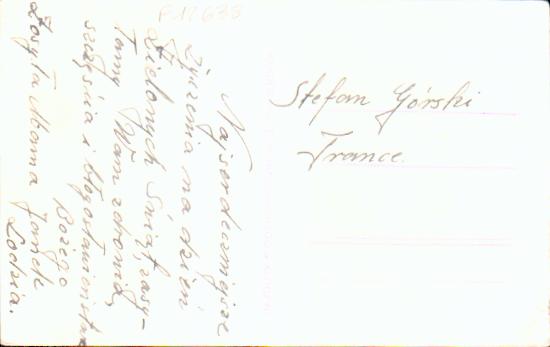 P.17633
Najserdeczniejsze
życzenia na dzień
Zielonych Świąt, zasy-
łamy Wam zdrowia,
szczęścia i błogosławieństwa
Bożego
Zosyła Mama Janek
Lodzia.
Stefan Górski
France.